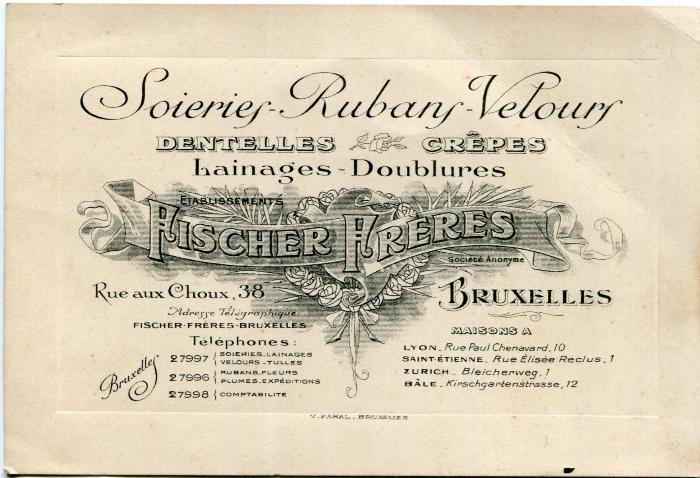 Soieries-Rubans-Velours
DENTELLES CRÊPES
Lainages-Doublures
ETABLISSEMENTS
FISCHER FRÈRES
Société Anonyme
Rue aux Choux, 38
BRUXELLES
Adresse Télégraphique
FISCHER-FRÈRES-BRUXELLES
Téléphones:
Bruxelles
27997 SOIERIES_LAINAGES
VELOURS_TULLES
27996 RUBANS_FLEURS
PLUMES_EXPÉDITIONS
27998 COMPTABILITÉ
MAISONS A
LYON_ Rue Paul Chenavard, 10
SAINT-ÉTIENNE_ Rue Élisée Reclus, 1
ZURICH_ Bleicherweg, 1
BÂLE_ Kirschgartenstrasse, 12
V. FARAL_BRUXELLES